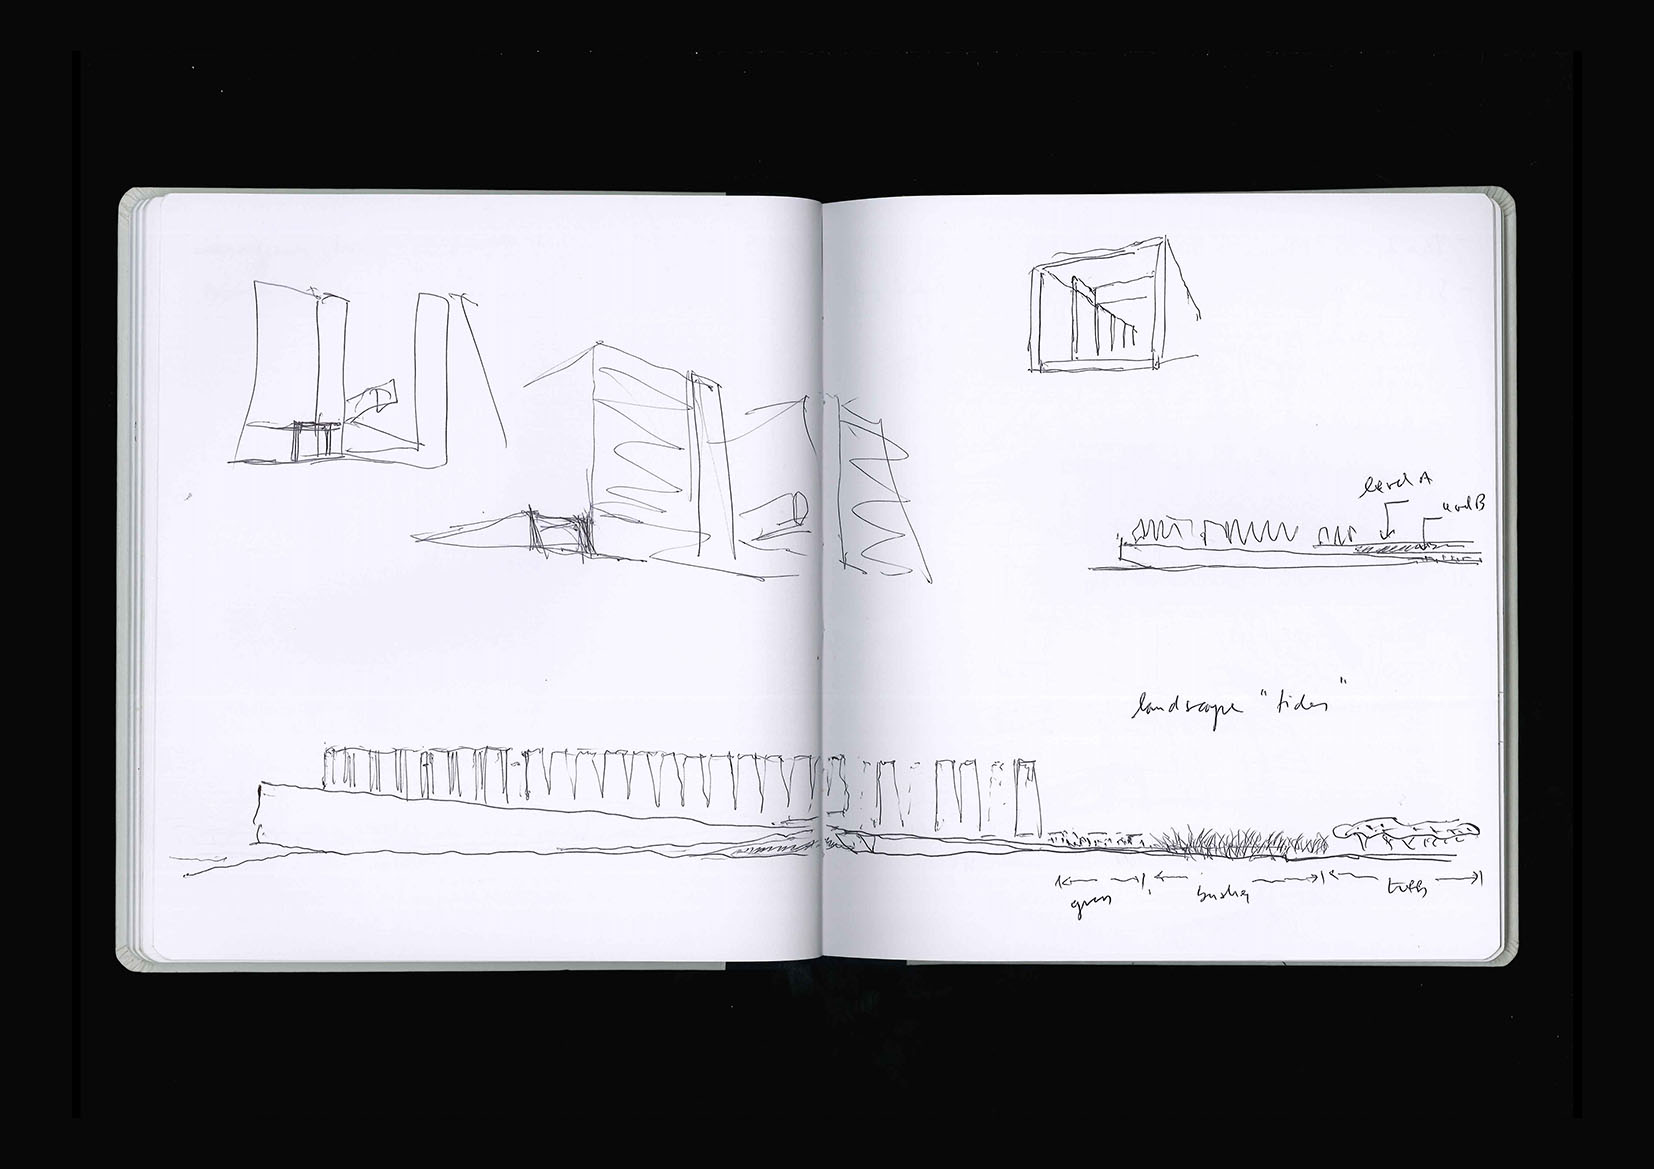 level A
level B
landscape "tides"
grass
bushes
trees